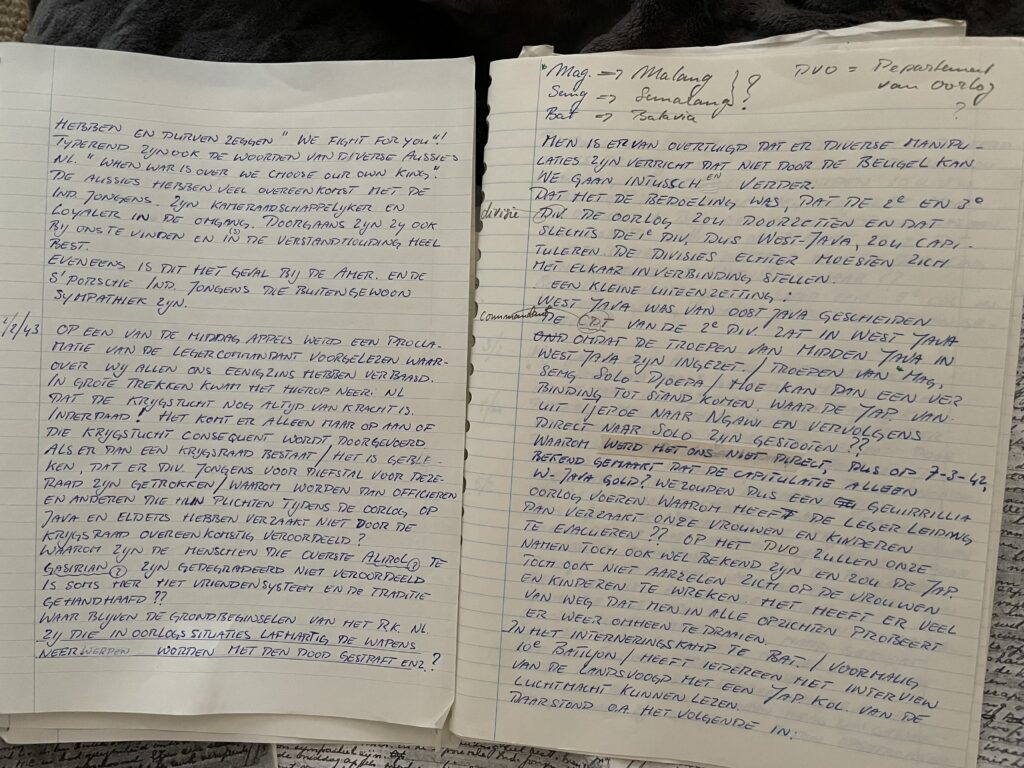 HEBBEN EN DURVEN ZEGGEN "WE FIGHT FOR YOU"!
TYPEREND ZYN OOK DE WOORDEN VAN DIVERSE AUSSIES
NL. "WHEN WAR IS OVER WE CHOOSE OUR OWN KING".
DE AUSSIES HEBBEN VEEL OVEREENKOMST MET DE
IND. JONGENS. ZYN KAMERAADSCHAPPELYKER EN
LOYALER IN DE OMGANG. DOORGAANS ZYN ZY OOK
BY ONS TE VINDEN EN IN (IS) DE VERSTANDHOUDING HEEL
BEST.
EVENEENS IS DIT HET GEVAL BY DE AMER. EN DE
S'PORSCHE IND. JONGENS DIE BUITENGEWOON
SYMPATHIEK ZYN.
1/2/43
OP EEN VAN DE MIDDAG APPELS WERD EEN PROCLA-
MATIE VAN DE LEGERCOMMANDANT VOORGELEZEN WAAR-
OVER WY ALLEN ONS EENIGZINS HEBBEN VERBAASD.
IN GROTE TREKKEN KWAM HET HIEROP NEER: NL
DAT DE KRYGSTUCHT NOG ALTYD VAN KRACHT IS.
INDERDAAD! HET KOMT ER ALLEEN MAAR OP AAN OF
DIE KRYGSTUCHT CONSEQUENT WORDT DOORGEVOERD
ALS ER DAN EEN KRYGSRAAD BESTAAT / HET IS GEBLE-
KEN, DAT ER DIV. JONGENS VOOR DIEFSTAL VOOR DEZE-
RAAD ZYN GETROKKEN / WAAROM WORDEN DAN OFFICIEREN
EN ANDEREN DIE HUN PLICHTEN TYDENS DE OORLOG OP
JAVA EN ELDERS HEBBEN VERZAAKT NIET DOOR DE
KRYGSRAAD OVEREENKOMSTIG VEROORDEELD?
WAAROM ZYN DE MENSCHEN DIE OVERSTE ALIROL (?) TE
GASIRIAN (?) ZYN GEDEGRADEERD NIET VEROORDEELD
IS SOMS HIER HET VRIENDENSYSTEEM EN DE TRADITIE
GEHANDHAAFD??
WAAR BLIJVEN DE GRONDBEGINSELEN VAN HET R.K. NL.
ZY DIE IN OORLOGSSITUATIES LAFHARTIG DE WAPENS
NEERWERPEN WORDEN MET DEN DOOD GESTRAFT ENZ.?
Mag. => Malang } ?
Semg => Semarang
Bat => Batavia
DVO = Departement
van Oorlog
?
MEN IS ERVAN OVERTUIGD DAT ER DIVERSE MANIPU-
LATIES ZYN VERRICHT DAT NIET DOOR DE BEUGEL KAN
WE GAAN INTUSSCHEN VERDER.
DAT HET DE BEDOELING WAS, DAT DE 2e EN 3e
divisie
DIV. DE OORLOG ZOU DOORZETTEN EN DAT
SLECHTS DE 1e DIV. DUS WEST-JAVA, ZOU CAPI-
TULEREN. DE DIVISIES ECHTER MOESTEN ZICH
MET ELKAAR IN VERBINDING STELLEN.
EEN KLEINE UITEENZETTING:
WEST JAVA WAS VAN OOST JAVA GESCHEIDEN
commandant
DE CDT VAN DE 2e DIV. ZAT IN WEST JAVA
OMDAT DE TROEPEN VAN MIDDEN JAVA IN
WEST JAVA ZYN INGEZET. / TROEPEN VAN MAG,
SEMG SOLO-DJOEPA / HOE KAN DAN EEN VER
BINDING TOT STAND KOMEN. WAAR DE JAP. VAN
UIT TJEROE NAAR NGAWI EN VERVOLGENS
DIREKT NAAR SOLO ZYN GESTOOTEN??
WAAROM WERD HET ONS NIET DIREKT, DUS OP 7-3-42,
BEKEND GEMAAKT DAT DE CAPITULATIE ALLEEN
W-JAVA GOLD? WE ZOUDEN DUS EEN GEUIRRILLIA
OORLOG VOEREN. WAAROM HEEFT DE LEGERLEIDING
DAN VERZAAKT ONZE VROUWEN EN KINDEREN
TE EVACUEREN?? OP HET DVO ZULLEN ONZE
NAMEN TOCH OOK WEL BEKEND ZYN EN ZOU DE JAP.
TOCH OOK NIET AARZELEN ZICH OP DE VROUWEN
EN KINDEREN TE WREKEN. HET HEEFT ER VEEL
VAN WEG DAT MEN IN ALLE OPZICHTEN PROBEERT
ER WEER OMHEEN TE DRAAIEN.
IN HET INTERNERINGSKAMP TE BAT. / VOORMALIG
10e BATILJON / HEEFT IEDEREEN HET INTERVIEW
VAN DE LANDSVOOGD MET EEN JAP. KOL. VAN DE
LUCHTMACHT KUNNEN LEZEN.
DAAR STOND O.A. HET VOLGENDE IN: